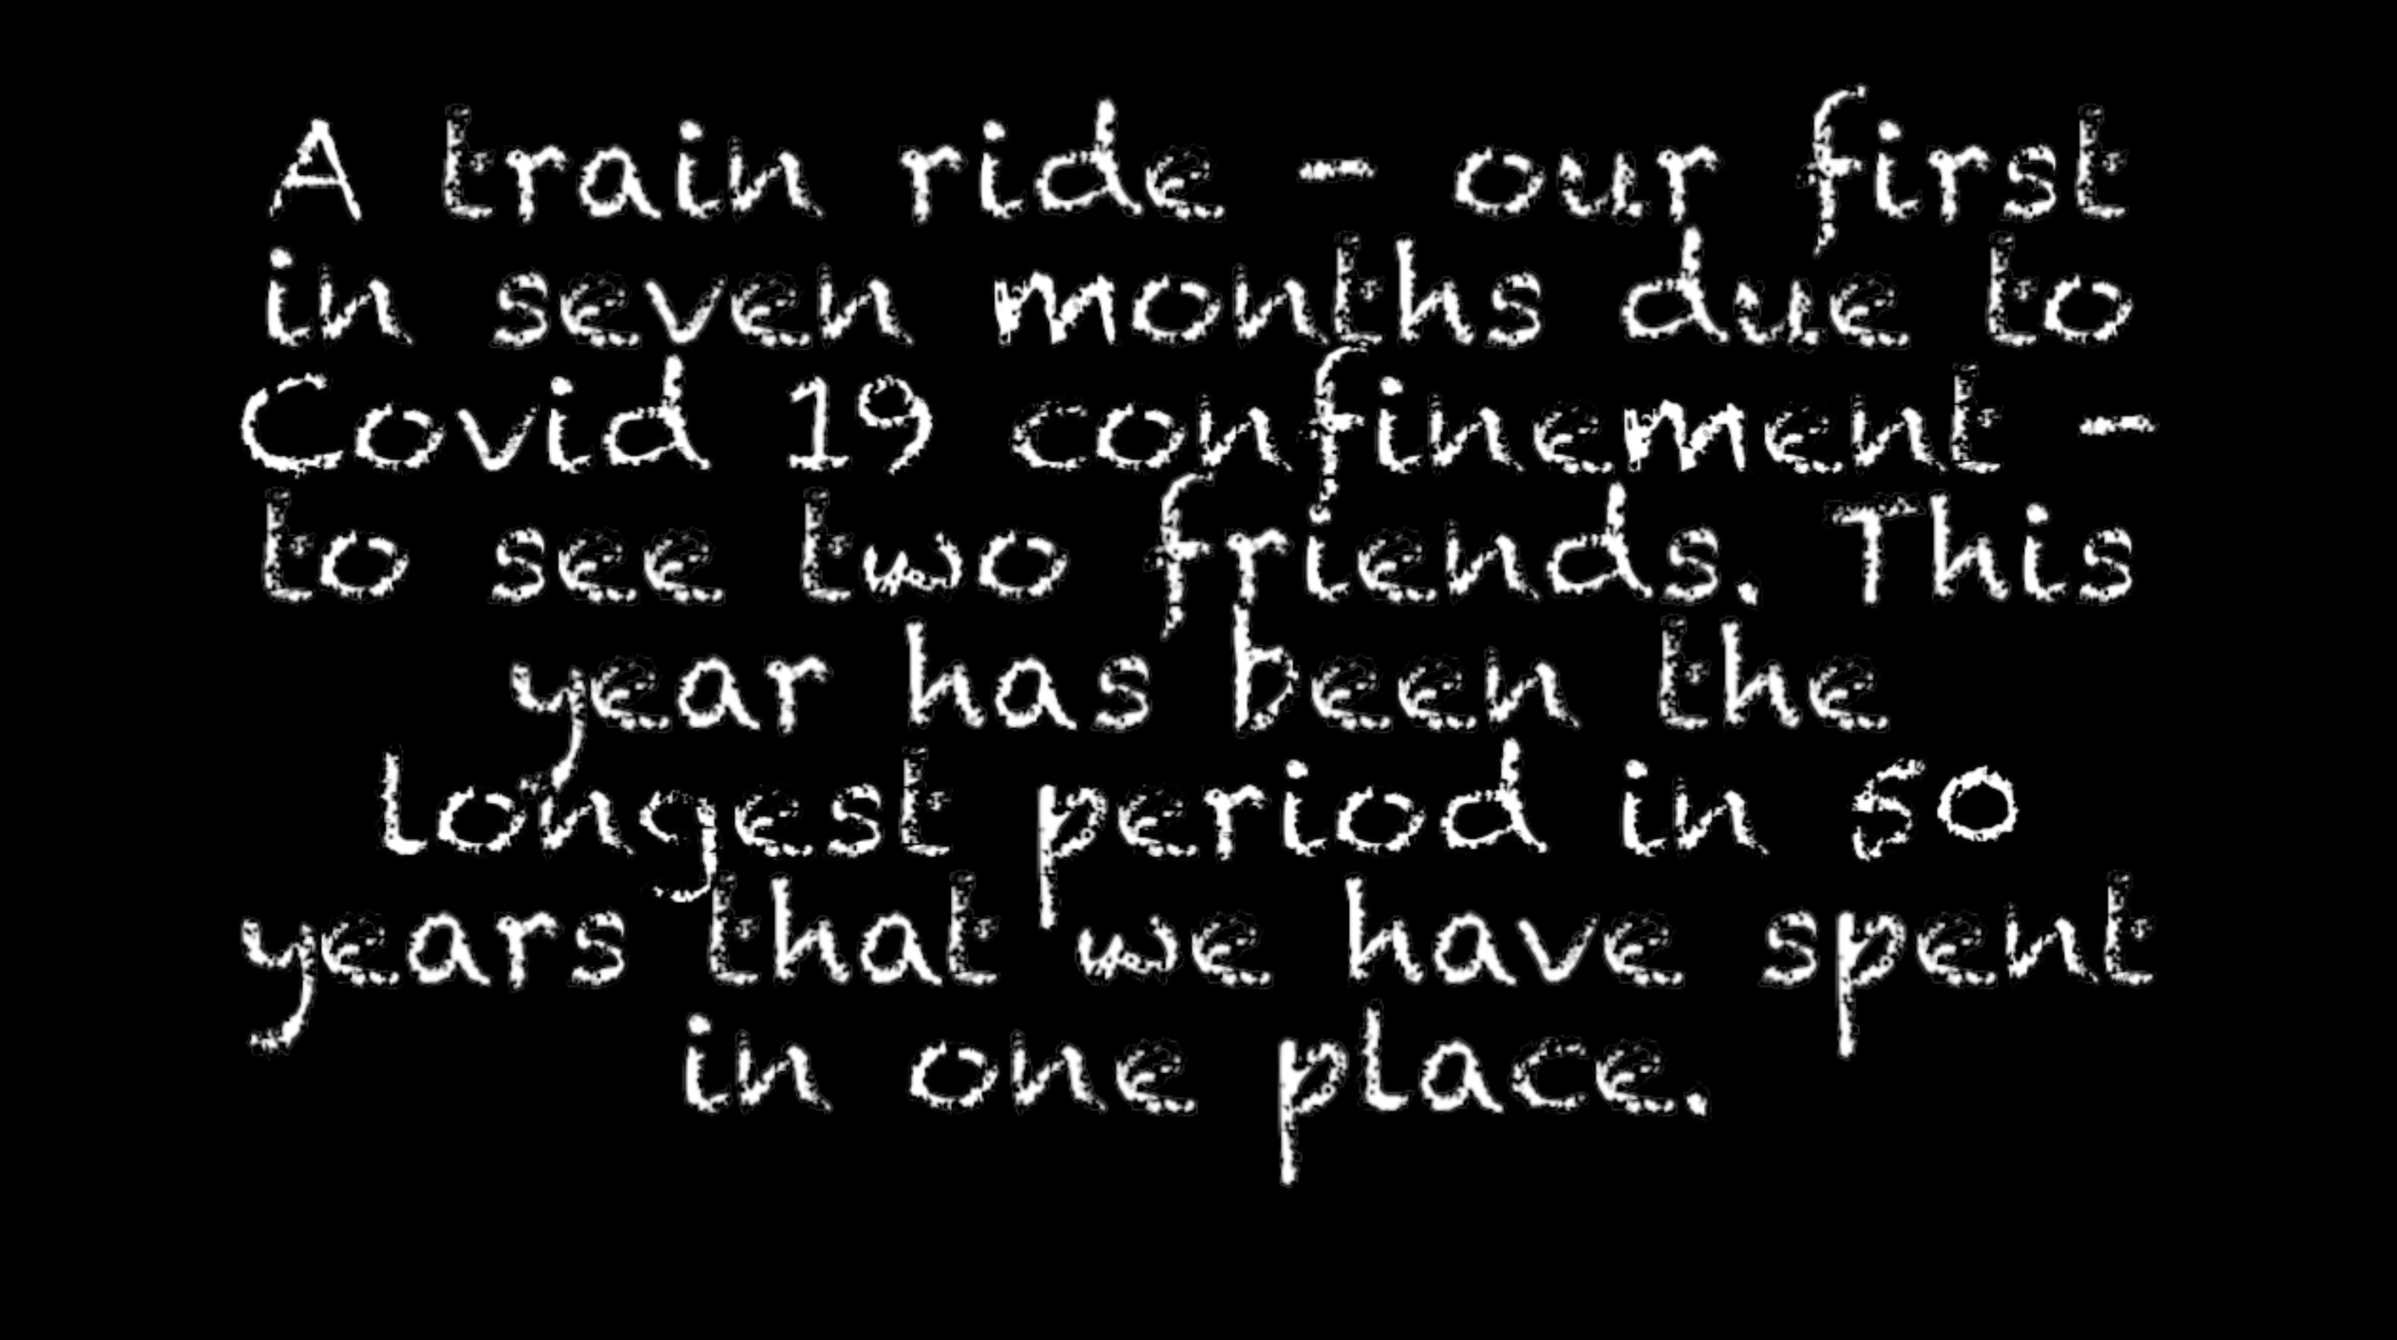 A train ride - our first
in seven months due to
Covid 19 confinement -
to see two friends. This
year has been the
longest period in 50
years that we have spent
in one place.